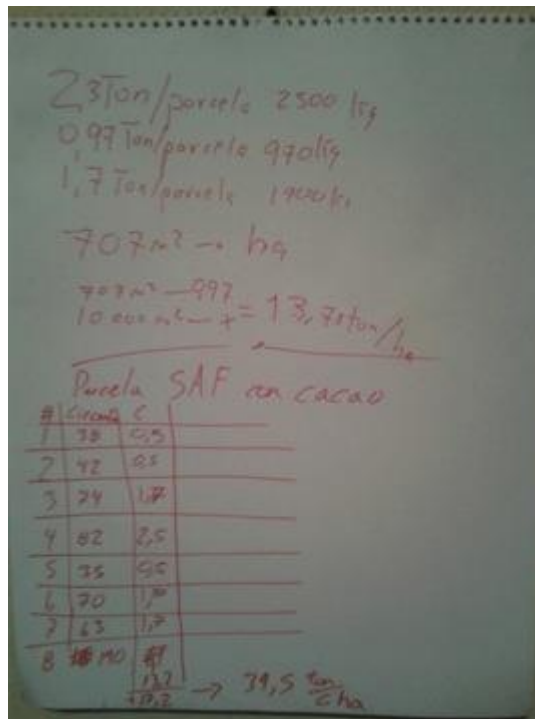 2,3Ton/parcela 2500 kg
0,97 Ton/parcela 970kg
1,7 Ton/parcela
707m² → ha
707m² — 0,97
10 000 m² — x = 13,7 ton/ha
Parcela SAF con cacao
# C
1 38 0,5
2 42 0,5
3 74 1,7
4 82 2,5
5 35 0,5
6 70
7 63 1,7
8 140
→ 39,5 ton C/ha